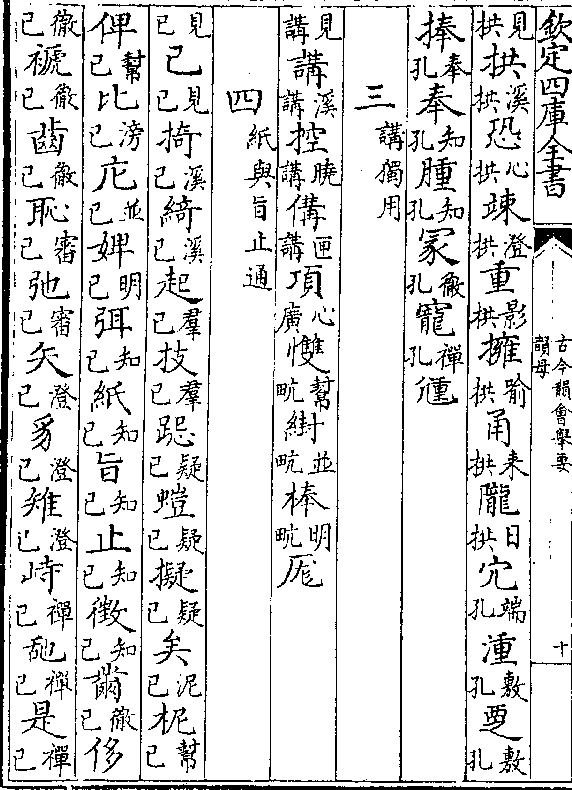 欽定四庫全書
古今韻會舉要
韻母
十
見拱拱溪拱恐心拱竦澄拱重影拱擁喻拱甬来拱隴日拱宂端孔湩敷孔覂敷孔
捧奉孔奉知孔腫知孔冢徹孔寵禪孔尰
三講獨用
見講講溪講控曉講傋匣講項心廣㦼幫㽘䋽並㽘棒明㽘厖
四紙與旨止通
見已已見已掎溪已綺溪已起羣已技羣已跽疑已螘疑已擬疑已矣泥已柅幫已
俾幫已比滂已庀並已婢明已弭知已紙知已旨知已止知已徵知已黹徹已侈
徹已褫徹已齒徹已恥審已弛審已矢澄已豸澄已雉澄已峙禪已𦧇禪已是禪已